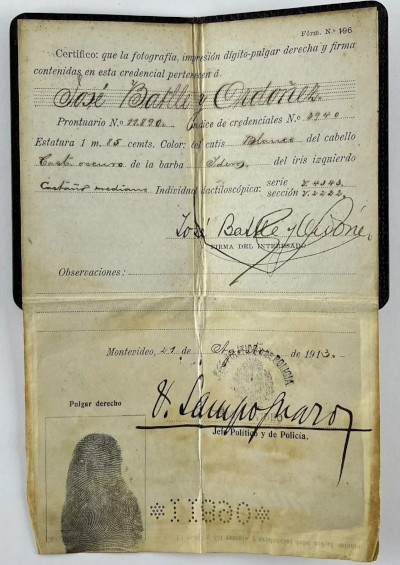 Fórm. N.º 196
Certifico: que la fotografía, impresión dígito-pulgar derecha y firma
contenidas en esta credencial pertenecen á
José Batlle y Ordoñez.
Prontuario N.º 11.890. Indice de credenciales N.º 3940
Estatura 1 m. 85 cemts. Color del cutis blanco del cabello
Cast. oscuro de la barba Idem. del iris izquierdo
Castaño mediano Individual dactiloscópica: serie V. 4343
sección V. 2222
José Batlle y Ordóñez
FIRMA DEL INTERESADO
Observaciones:
Montevideo, 21 de de 1913.
Pulgar derecho
V. Sampognaro
Jefe Político y de Policía.
*11890*